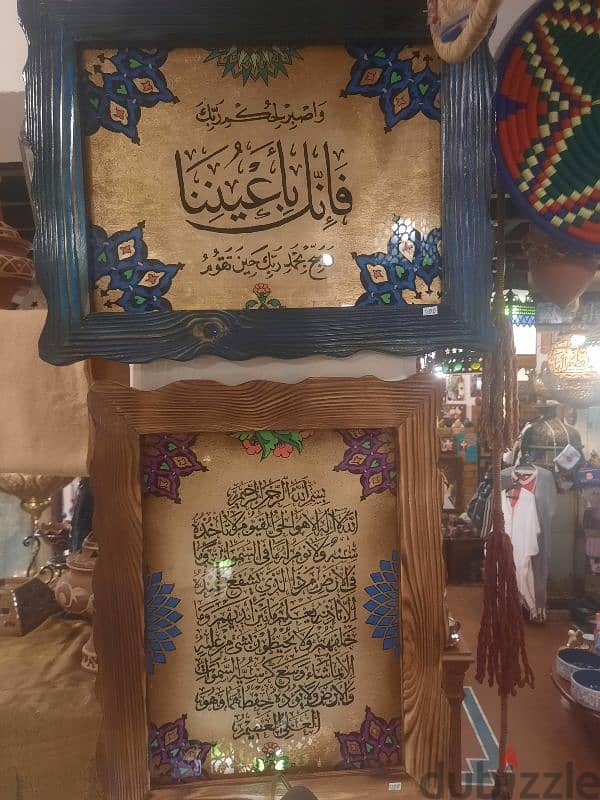 وَاصْبِرْ لِحُكْمِ رَبِّكَ
فَإِنَّكَ بِأَعْيُنِنَا
وَسَبِّحْ بِحَمْدِ رَبِّكَ حِينَ تَقُومُ
بسم الله الرحمن الرحيم
الله لا إله إلا هو الحي القيوم لا تأخذه
سنة ولا نوم له ما في السموات وما
في الأرض من ذا الذي يشفع عنده
إلا بإذنه يعلم ما بين أيديهم وما
خلفهم ولا يحيطون بشيء من علمه
إلا بما شاء وسع كرسيه السموات
والأرض ولا يؤده حفظهما وهو
العلي العظيم
dubizzle